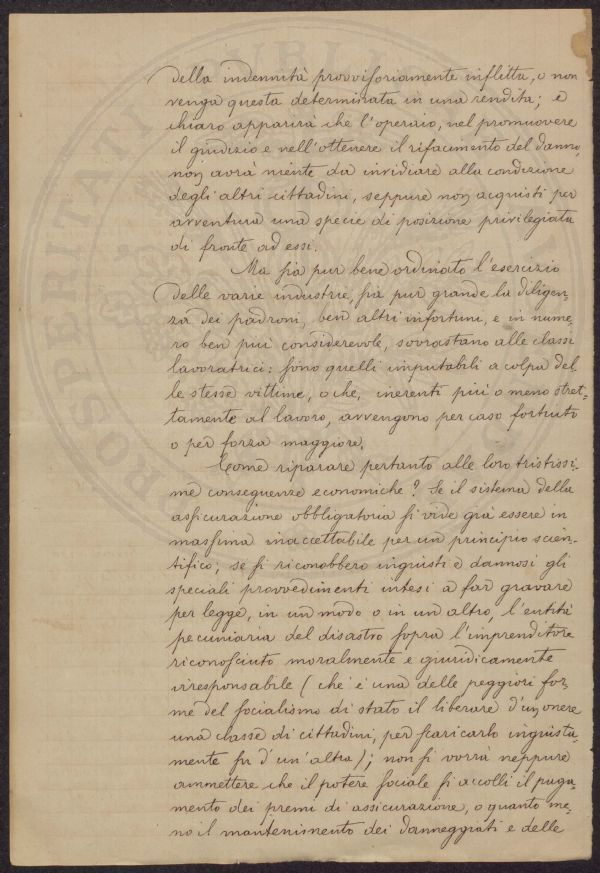 della indennità provvisoriamente inflitta, o non
venga questa determinata in una rendita; e
chiaro apparirà che l'operaio, nel promuovere
il giudizio e nell'ottenere il rifacimento del danno,
non avrà niente da invidiare alla condizione
degli altri cittadini, seppure non acquisti per
avventura una specie di posizione privilegiata
di fronte ad essi.
Ma sia pur bene ordinato l'esercizio
delle varie industrie, sia pur grande la diligen-
za dei padroni, ben altri infortuni, e in nume-
ro ben più considerevole, sovrastano alle classi
lavoratrici: sono quelli imputabili a colpa del-
le stesse vittime, o che, inerenti più o meno stret-
tamente al lavoro, avvengono per caso fortuito
o per forza maggiore.
Come riparare pertanto alle loro tristissi-
me conseguenze economiche? Se il sistema della
assicurazione obbligatoria si vide già essere in
massima inaccettabile per un principio scien-
tifico; se si riconobbero ingiusti e dannosi gli
speciali provvedimenti intesi a far gravare
per legge, in un modo o in un altro, l'entità
pecuniaria del disastro sopra l'imprenditore
riconosciuto moralmente e giuridicamente
irresponsabile (chè è una delle peggiori for-
me del socialismo di stato il liberare d'un onere
una classe di cittadini, per scaricarlo ingiusta-
mente su d'un'altra); non si vorrà neppure
ammettere che il potere sociale si accolli il paga-
mento dei premi di assicurazione, o quanto me-
no il mantenimento dei danneggiati e delle
PROSPERITATI PUBLICAE